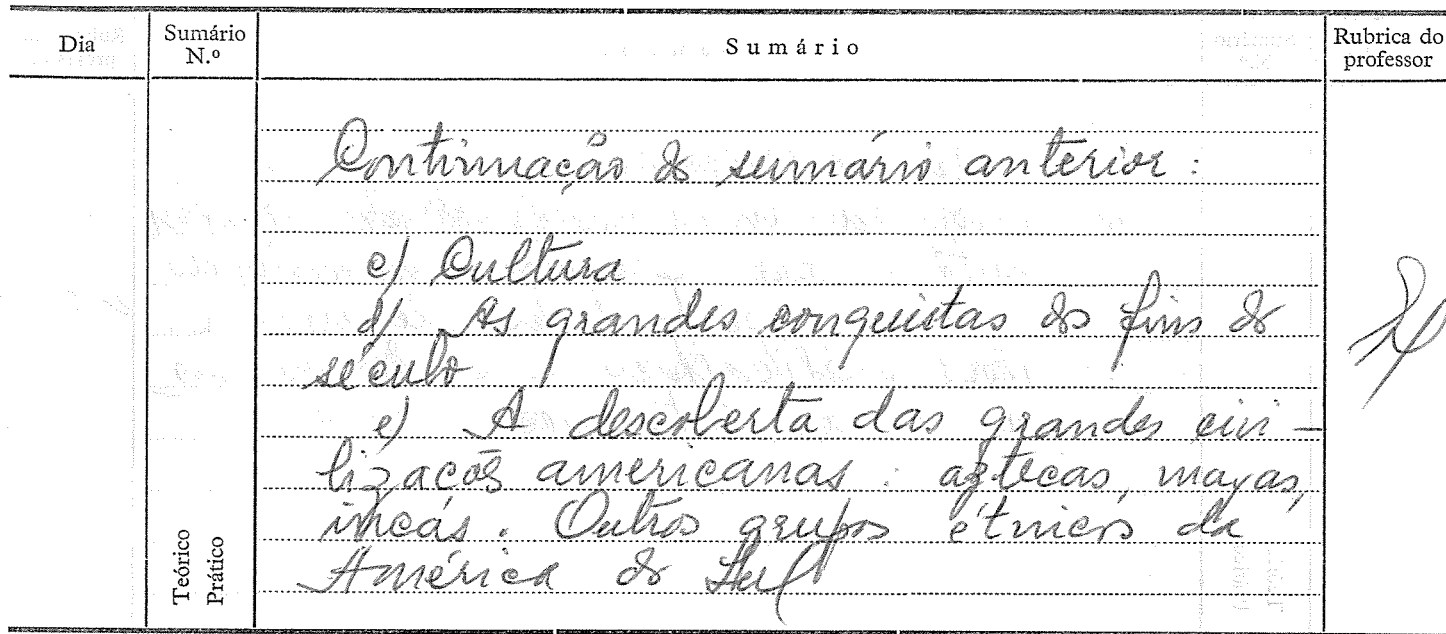 Dia
Sumário
N.º
Sumário
Rubrica do
professor
Continuação do sumário anterior:
c) Cultura
d) As grandes conquistas dos fins do
século
e) A descoberta das grandes civi-
lizações americanas: aztecas, mayas,
incás. Outros grupos étnicos da
América do Sul
Teórico
Prático